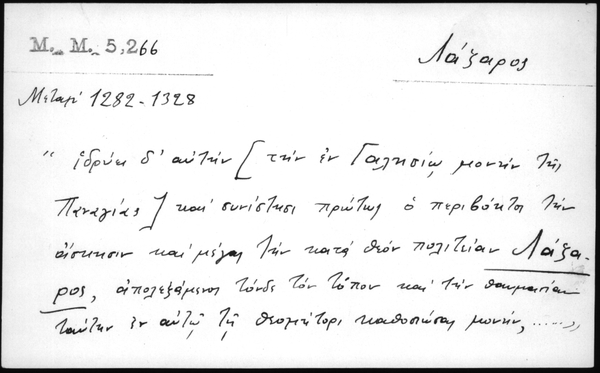 M. M. 5,266
Λάζαρος
Μεταξύ 1282-1328
"ἱδρύει δ' αὐτὴν [τὴν ἐν Γαλησίῳ μονὴν τῆς
Παναγίας] καὶ συνίστησι πρώτως ὁ περιβόητος τὴν
ἄσκησιν καὶ μέγας τὴν κατὰ θεὸν πολιτείαν Λάζα-
ρος, ἀπολεξάμενος τόνδε τὸν τόπον καὶ τὴν θαυμασίαν
ταύτην ἐν αὐτῷ τῇ θεομήτορι καθοσιώσας μονήν, ......,,